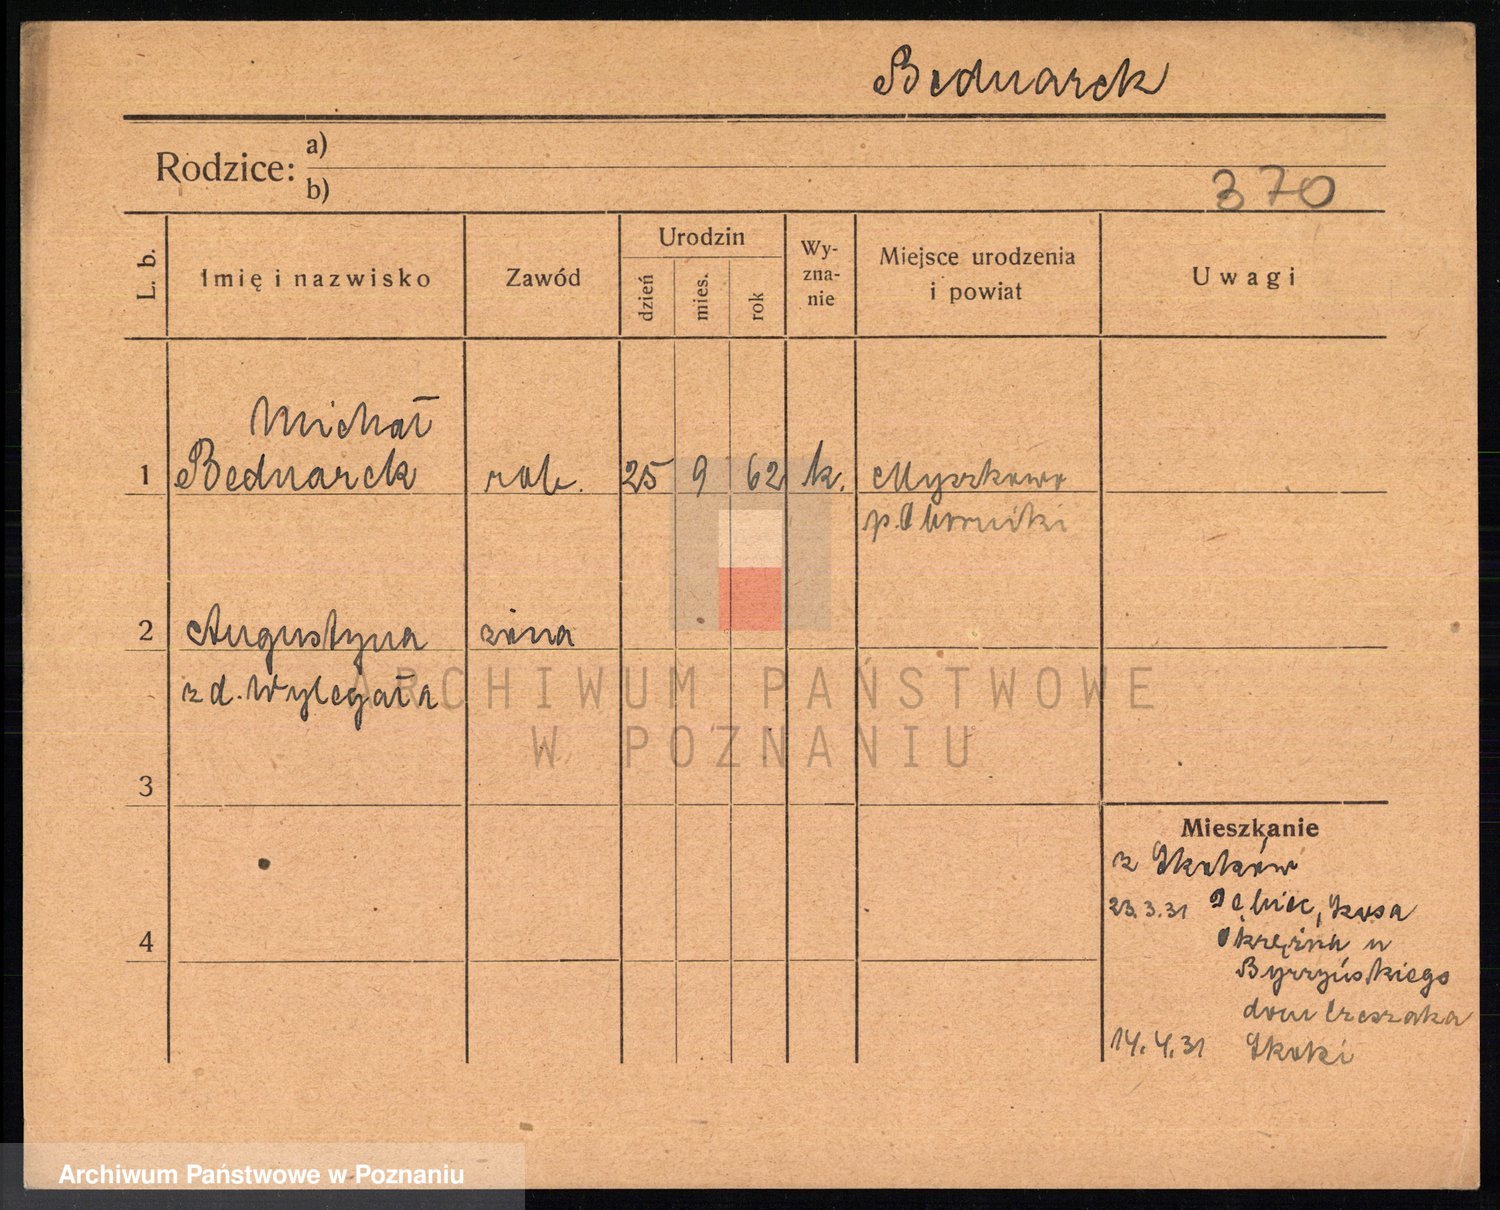 Bednarek
Rodzice: a)
b)
370
L. b.
Imię i nazwisko
Zawód
Urodzin
dzień
mies.
rok
Wy-
zna-
nie
Miejsce urodzenia
i powiat
Uwagi
Michał
1 Bednarek rob. 25 9 62 k. Myszkowo
p. Oborniki
2 Augustyna żona
z d. Wylegała
ARCHIWUM PAŃSTWOWE
W POZNANIU
3
Mieszkanie
z Skoków
23.3.31 Dębiec, Kosa
4
Okrężna u
Byrzyńskiego
dom Czeszaka
14.4.31 Skoki
Archiwum Państwowe w Poznaniu